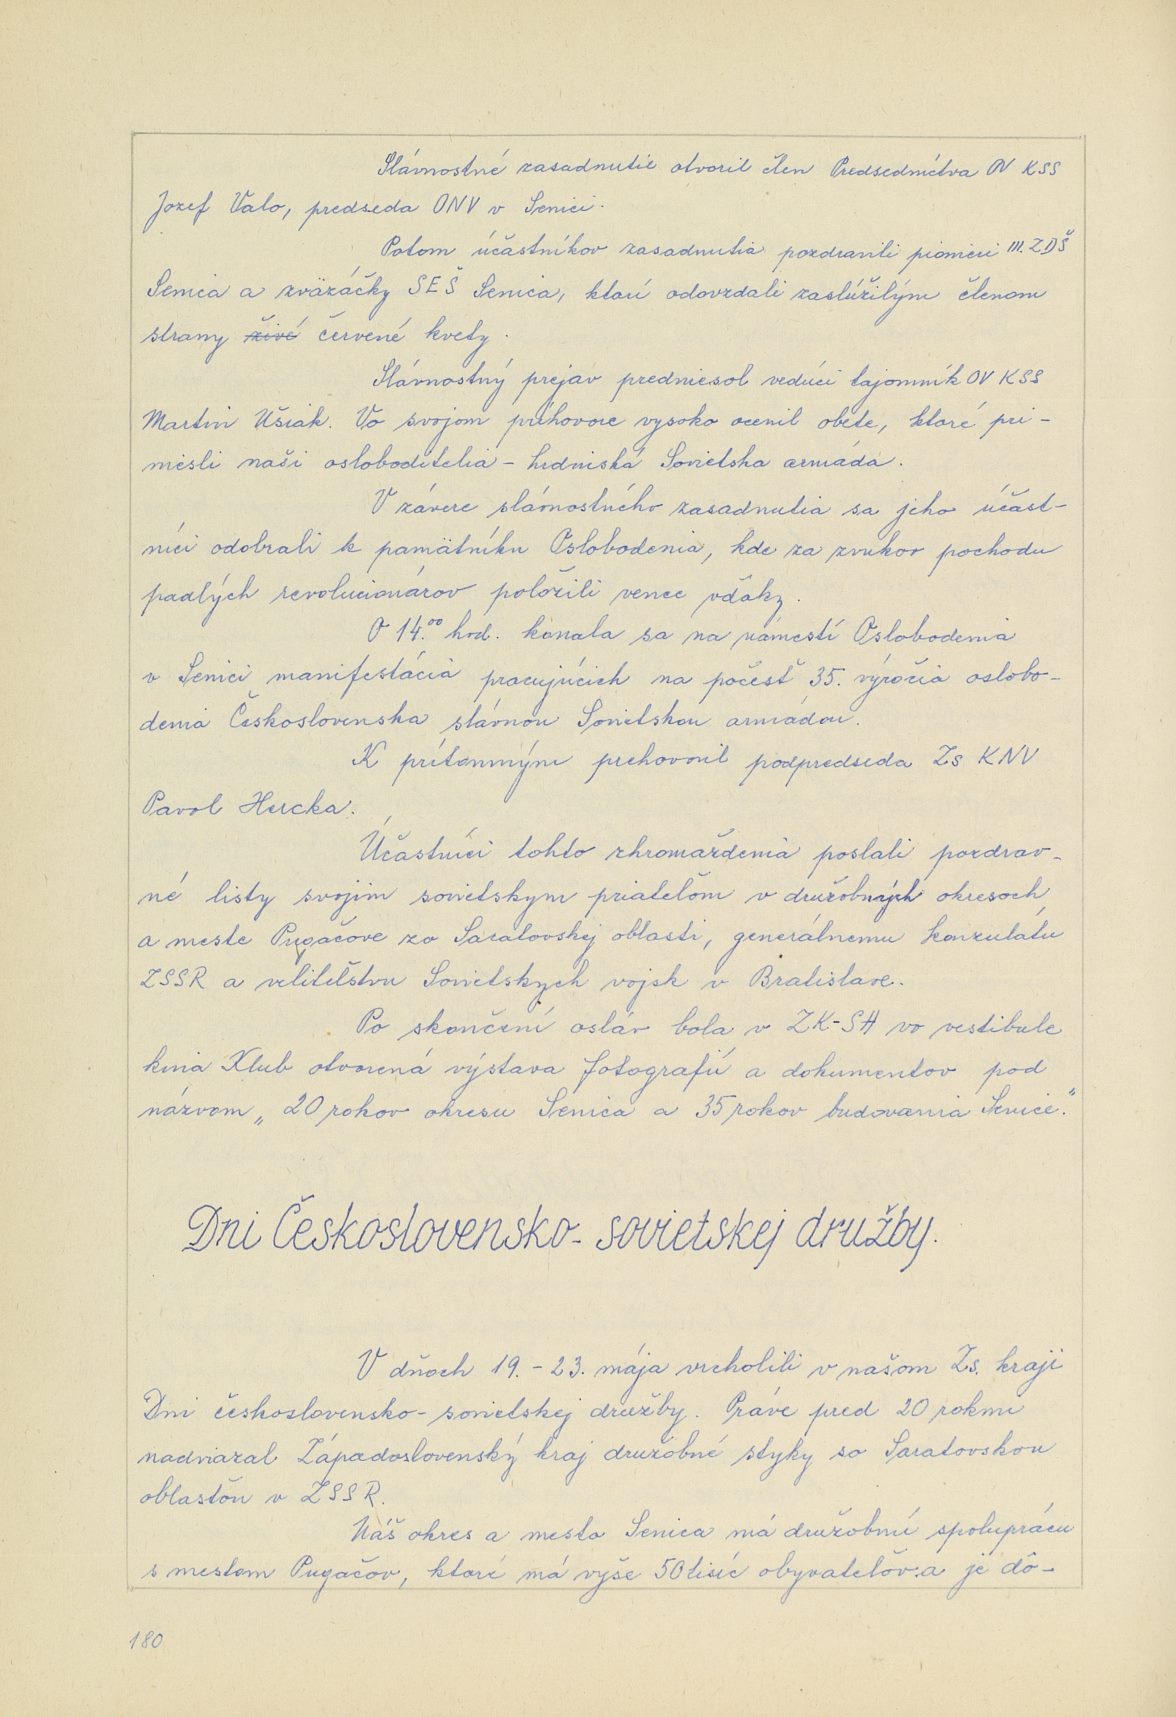 Slávnostné zasadnutie otvoril člen Predsedníctva OV KSS
Jozef Valo, predseda ONV v Senici.
Potom účastníkov zasadnutia pozdravili pionieri III. ZDŠ
Senica a zväzáčky SEŠ Senica, ktorí odovzdali zaslúžilým členom
strany živé červené kvety.
Slávnostný prejav predniesol vedúci tajomník OV KSS
Martin Ušiak. Vo svojom príhovore vysoko ocenil obete, ktoré pri-
niesli naši osloboditelia - hrdinská Sovietska armáda.
V závere slávnostného zasadnutia sa jeho účast-
níci odobrali k pamätníku Oslobodenia, kde za zvukov pochodu
padlých revolucionárov položili vence vďaky.
O 14.00 hod. konala sa na námestí Oslobodenia
v Senici manifestácia pracujúcich na počesť 35. výročia oslobo-
denia Československa slávnou Sovietskou armádou.
K prítomným prehovoril podpredseda Zs KNV
Pavol Hercka.
Účastníci tohto zhromaždenia poslali pozdrav-
né listy svojim sovietskym priateľom v družobných okresoch
a meste Pugačove zo Saratovskej oblasti, generálnemu konzulátu
ZSSR a veliteľstvu Sovietskych vojsk v Bratislave.
Po skončení osláv bola v ZK-SH vo vestibule
kina Klub otvorená výstava fotografií a dokumentov pod
názvom „20 rokov okresu Senica a 35 rokov budovania Senice."
Dni Československo-sovietskej družby.
V dňoch 19. - 23. mája vrcholili v našom Zs. kraji
Dni československo-sovietskej družby. Práve pred 20 rokmi
nadviazal Západoslovenský kraj družobné styky so Saratovskou
oblasťou v ZSSR.
Náš okres a mesto Senica má družobnú spoluprácu
s mestom Pugačov, ktoré má vyše 50 tisíc obyvateľov a je dô-
180